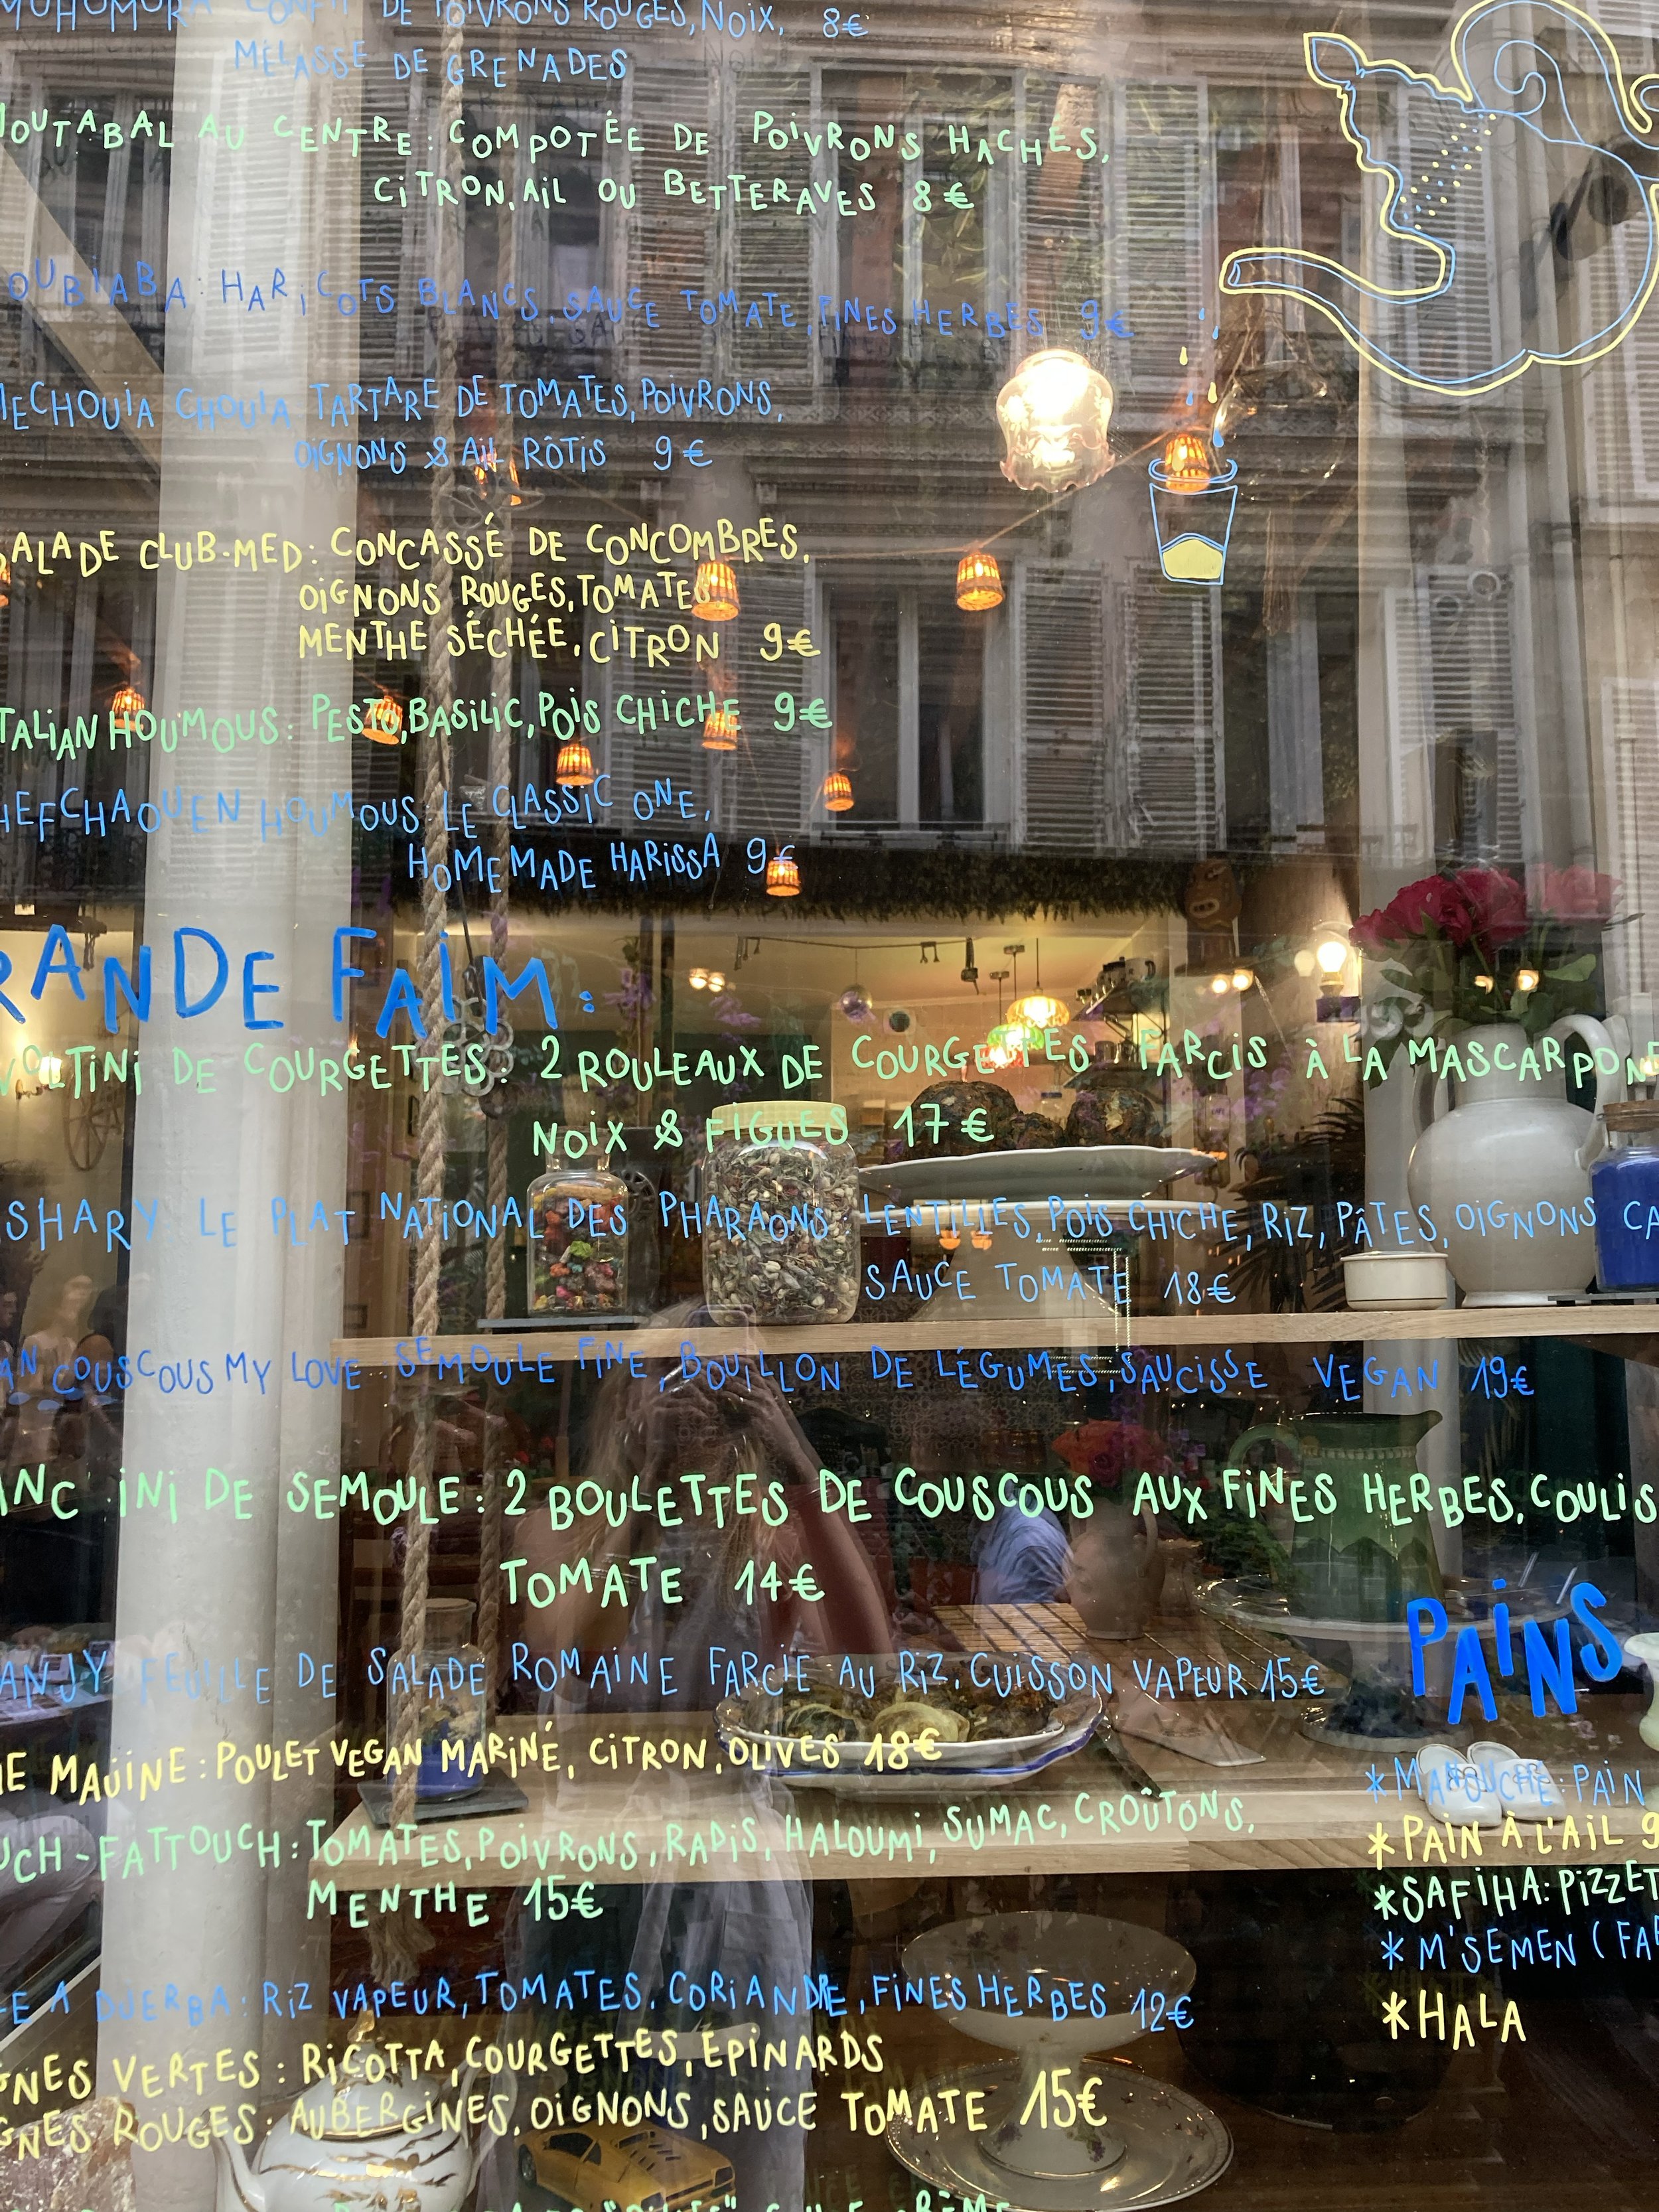 MUHUMURA CONFIT DE POIVRONS ROUGES, NOIX, 8€
MÉLASSE DE GRENADES
MOUTABAL AU CENTRE: COMPOTÉE DE POIVRONS HACHÉS,
CITRON, AIL OU BETTERAVES 8€
OUBIABA: HARICOTS BLANCS, SAUCE TOMATE, FINES HERBES 9€
MECHOUIA CHOUIA TARTARE DE TOMATES, POIVRONS,
OIGNONS & AIL RÔTIS 9€
SALADE CLUB-MED: CONCASSÉ DE CONCOMBRES,
OIGNONS ROUGES, TOMATES
MENTHE SÉCHÉE, CITRON 9€
TALIAN HOUMOUS: PESTO, BASILIC, POIS CHICHE 9€
HEFCHAOUEN HOUMOUS: LE CLASSIC ONE,
HOMEMADE HARISSA 9€
RANDE FAIM:
VOLTINI DE COURGETTES: 2 ROULEAUX DE COURGETTES FARCIS À LA MASCARPONE
NOIX & FIGUES 17€
SHARY. LE PLAT NATIONAL DES PHARAONS: LENTILLES, POIS CHICHE, RIZ, PÂTES, OIGNONS CA
SAUCE TOMATE 18€
AN COUSCOUS MY LOVE: SEMOULE FINE, BOUILLON DE LÉGUMES, SAUCISSE VEGAN 19€
ANC INI DE SEMOULE: 2 BOULETTES DE COUSCOUS AUX FINES HERBES, COULIS
TOMATE 14€
ANJY FEUILLE DE SALADE ROMAINE FARCIE AU RIZ, CUISSON VAPEUR 15€
PAINS
NE MAÜINE: POULET VEGAN MARINÉ, CITRON, OLIVES 18€
*MANOUCHE: PAIN
UCH-FATTOUCH: TOMATES, POIVRONS, RADIS, HALOUMI, SUMAC, CROÛTONS,
*PAIN À L'AIL 9
MENTHE 15€
*SAFIHA: PIZZET
*M'SEMEN (FA
E A DJERBA: RIZ VAPEUR, TOMATES, CORIANDRE, FINES HERBES 12€
*HALA
GNES VERTES: RICOTTA, COURGETTES, EPINARDS
GNES ROUGES: AUBERGINES, OIGNONS, SAUCE TOMATE 15€